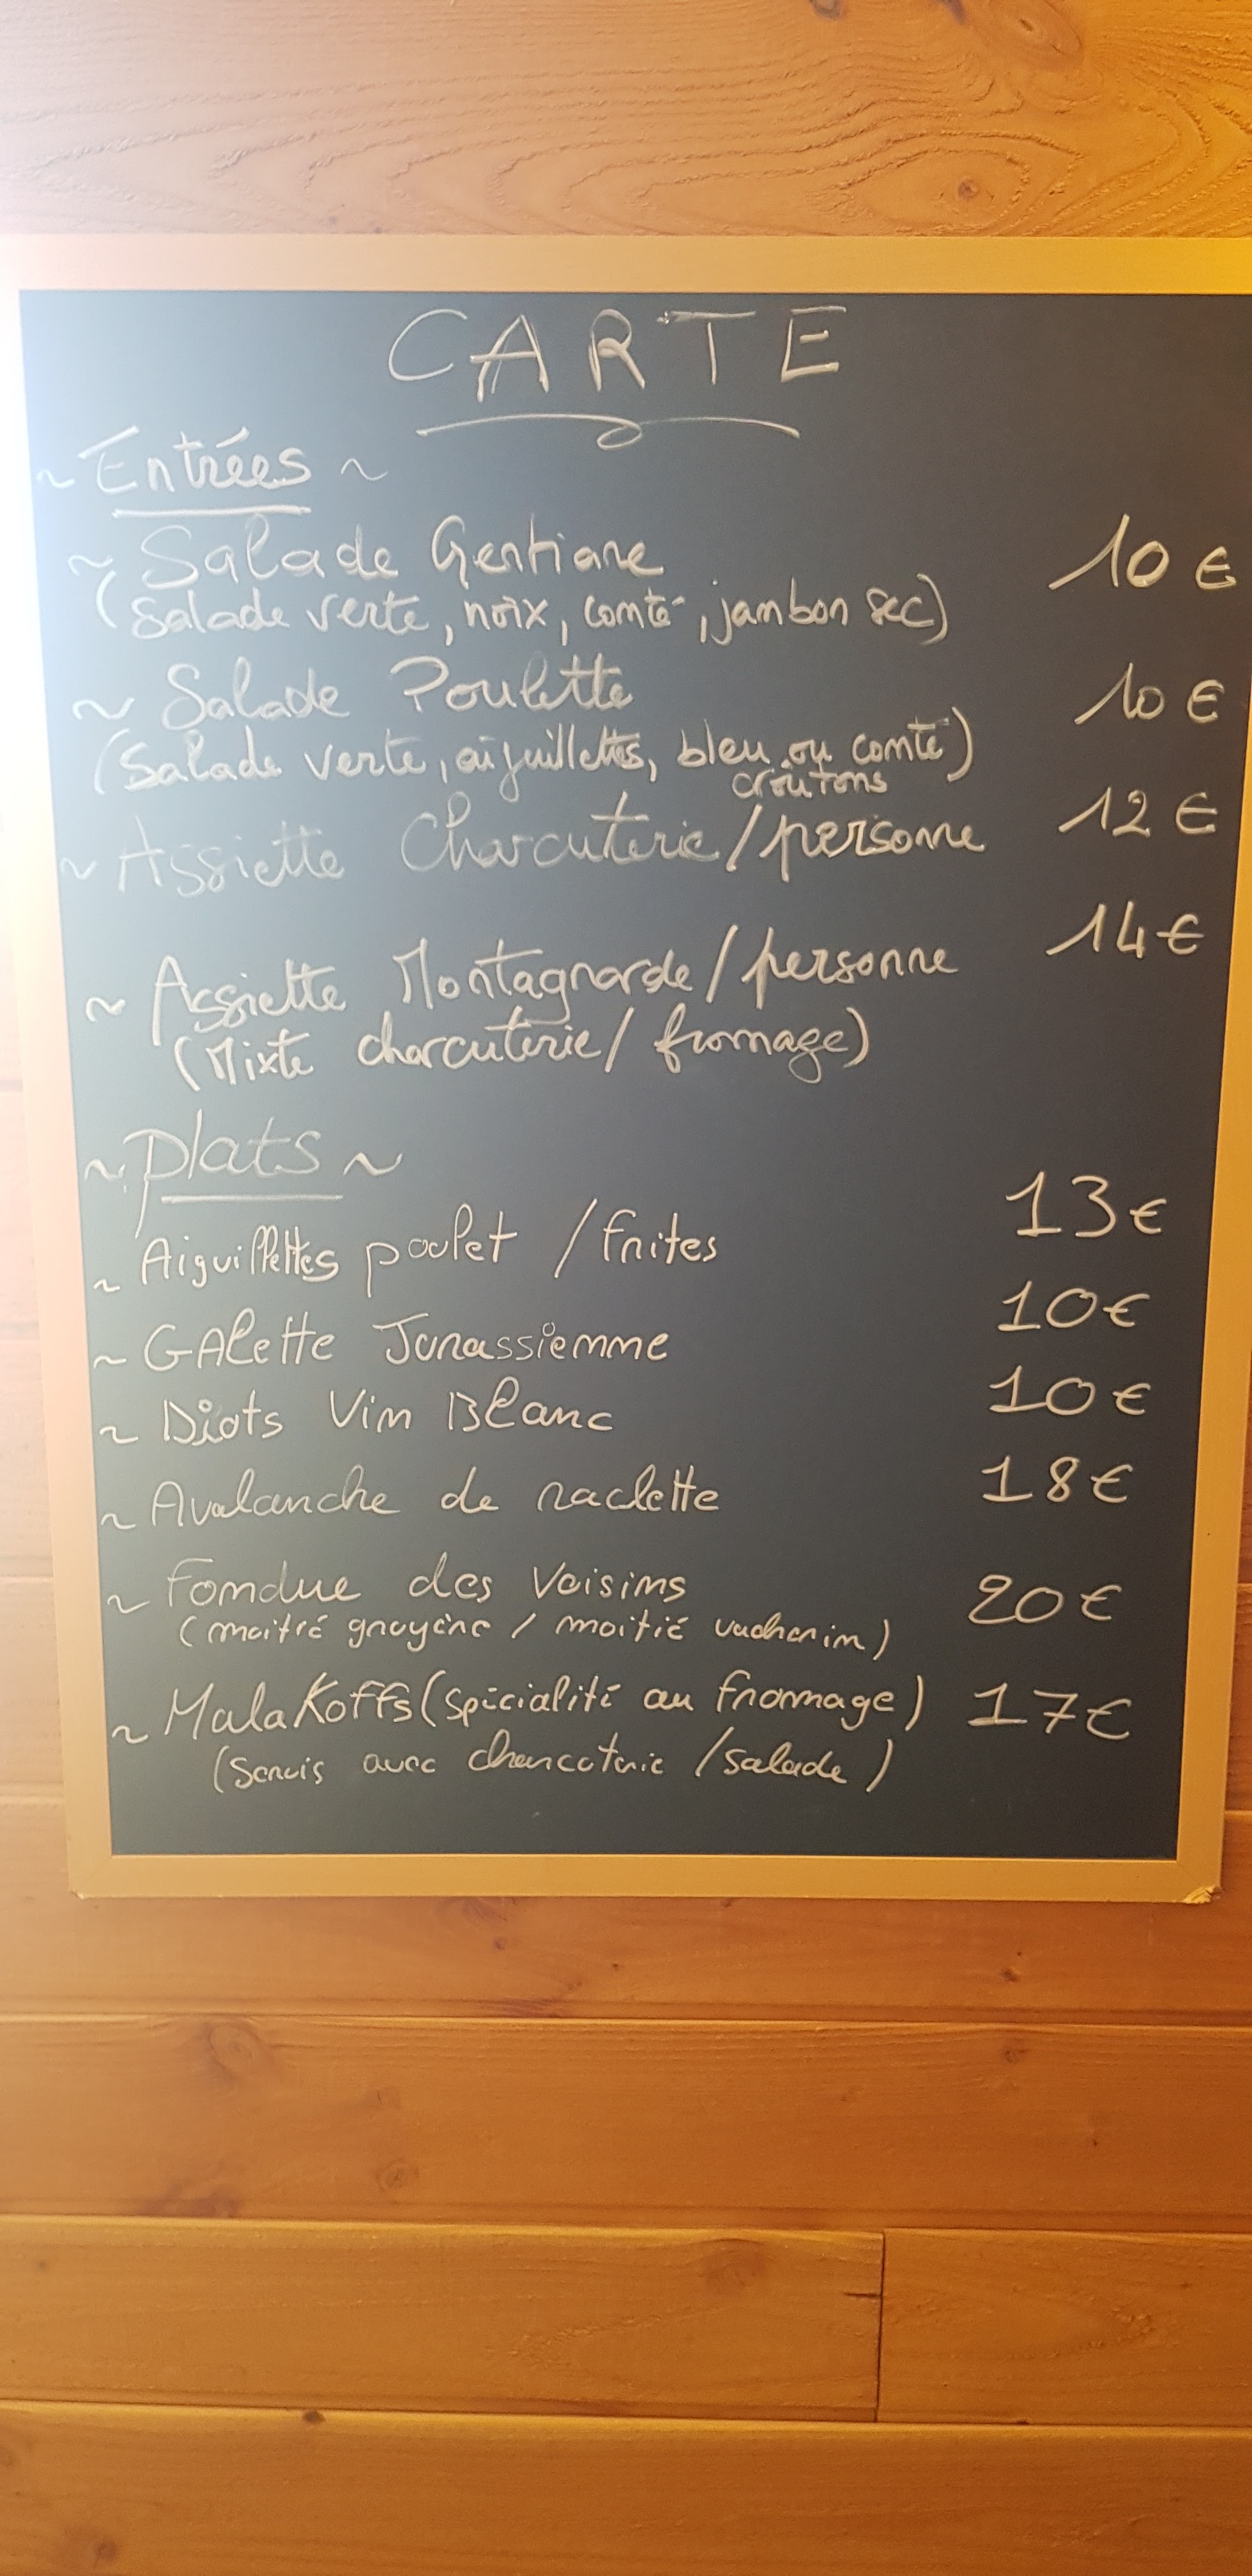 CARTE
~ Entrées ~
~ Salade Gentiane 10 €
(Salade verte, noix, comté, jambon sec)
~ Salade Poulette 10 €
(Salade verte, aiguillettes, bleu ou comté)
croûtons
~ Assiette Charcuterie/personne 12 €
~ Assiette Montagnarde/personne 14 €
(Mixte charcuterie/fromage)
~ Plats ~
~ Aiguillettes poulet / frites 13 €
~ GALette Jurassiemme 10 €
~ Diots Vin Blanc 10 €
~ Avalanche de raclette 18 €
~ Fondue des Voisins 20 €
(moitié gruyère / moitié vacherin)
~ Malakoffs (spécialité au fromage) 17 €
(Servis avec charcuterie / salade)